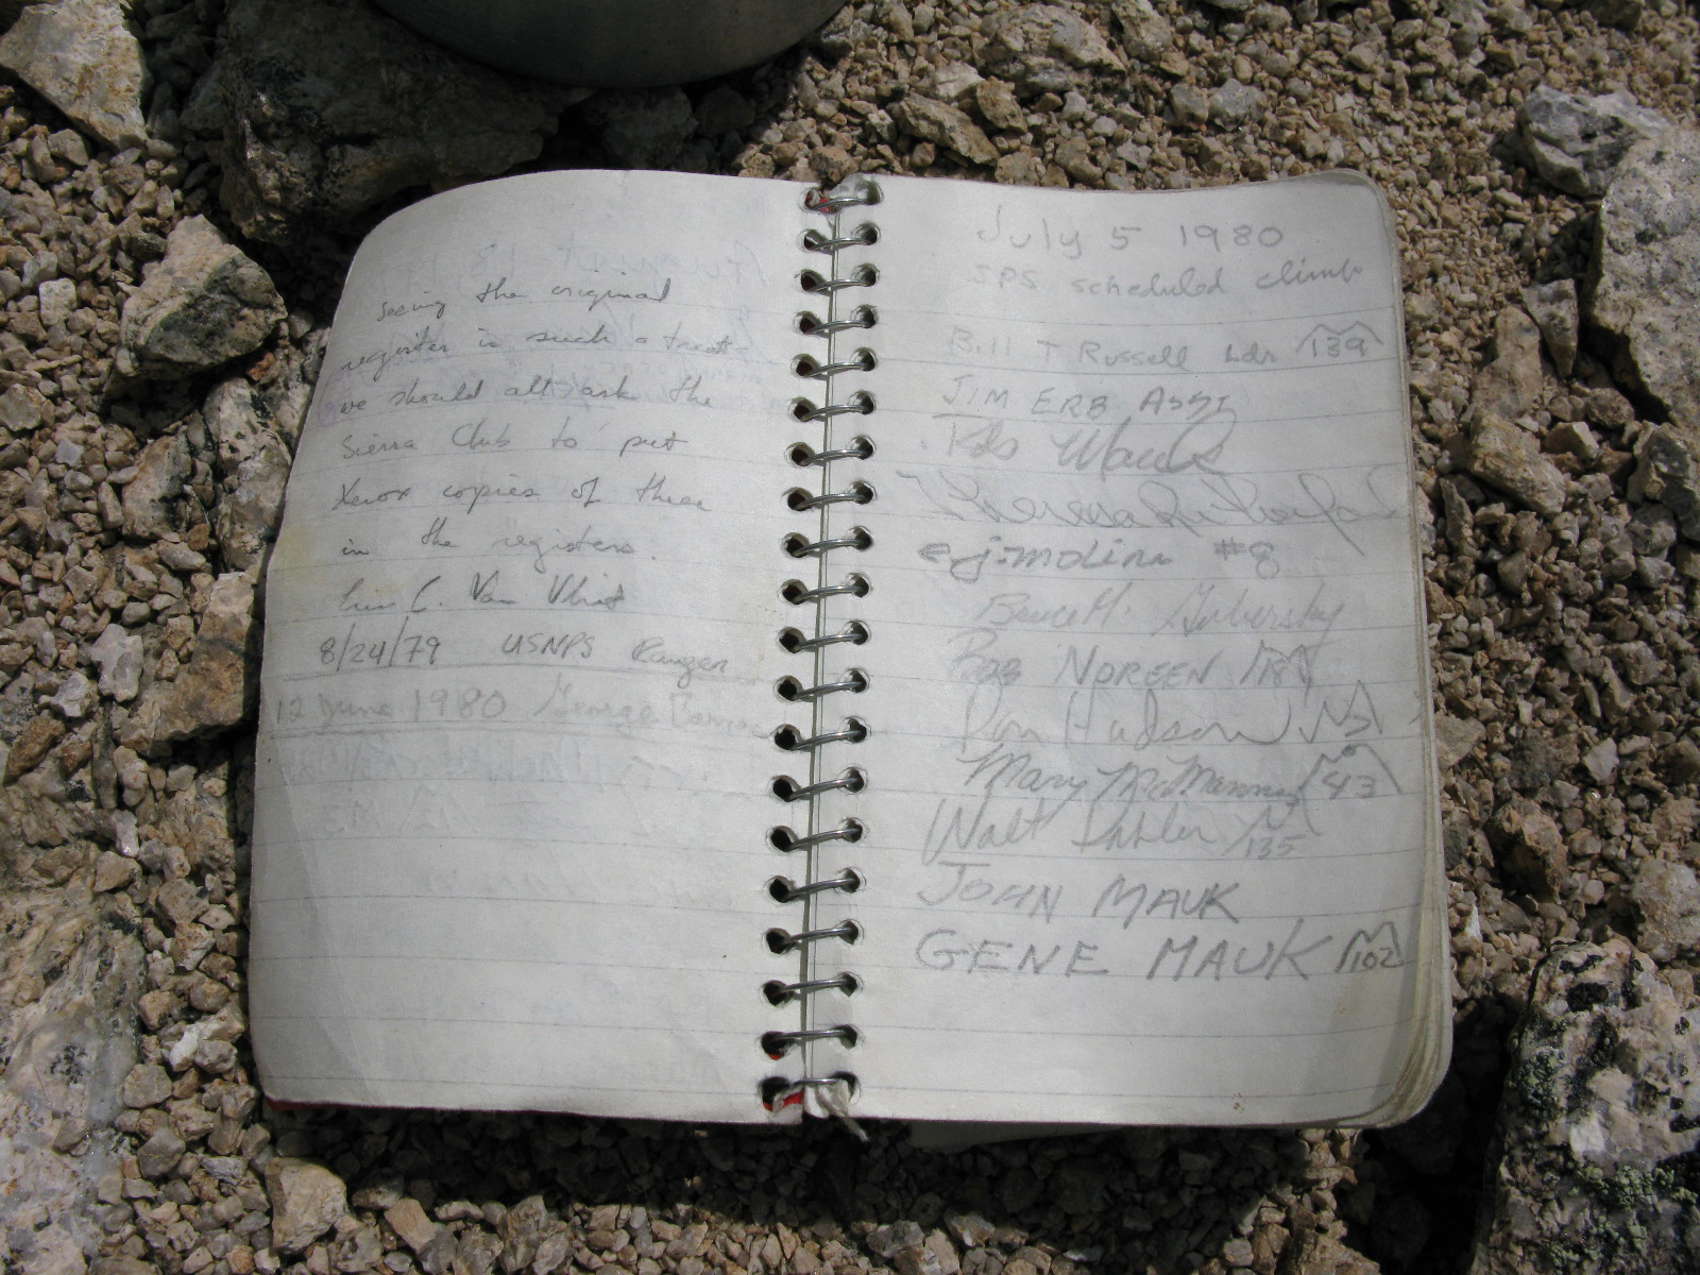 seeing the original
register is such a treat
we should all ask the
Sierra Club to put
Xerox copies of these
in the registers.
C. Van Vliet
8/24/79 USNPS Ranger
12 June 1980 George
July 5 1980
SPS scheduled climb
Bill T Russell Ldr 139
JIM ERB ASST
Theresa
e j. molina #8
Bruce M.
BOB NOREEN
Don Hudson
Mary McMannus 43
Walt 135
JOHN MAUK
GENE MAUK 102